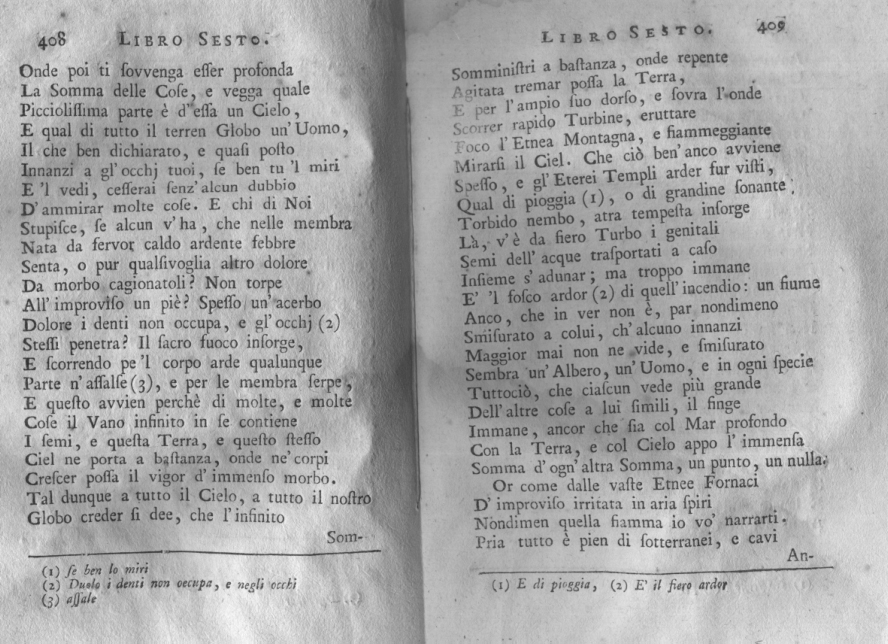 408 LIBRO SESTO.
Onde poi ti ſovvenga eſſer profonda
La Somma delle Coſe, e vegga quale
Picciolíſſima parte è d'eſſa un Cielo,
E qual di tutto il terren Globo un' Uomo,
Il che ben dichiarato, e quaſi poſto
Innanzi a gl' occhj tuoi, ſe ben tu 'l miri
E 'l vedi, ceſſerai ſenz' alcun dubbio
D' ammirar molte coſe. E chi di Noi
Stupiſce, ſe alcun v' ha, che nelle membra
Nata da fervor caldo ardente febbre
Senta, o pur qualſivoglia altro dolore
Da morbo cagionatoli? Non torpe
All' improviſo un piè? Speſſo un' acerbo
Dolore i denti non occupa, e gl' occhj (2)
Steſſi penetra? Il ſacro fuoco inſorge,
E ſcorrendo pe 'l corpo arde qualunque
Parte n' aſſalſe (3), e per le membra ſerpe,
E queſto avvien perchè di molte, e molte
Coſe il Vano infinito in ſe contiene
I ſemi, e queſta Terra, e queſto ſteſſo
Ciel ne porta a baſtanza, onde ne' corpi
Creſcer poſſa il vigor d' immenſo morbo.
Tal dunque a tutto il Cielo, a tutto il noſtro
Globo creder ſi dee, che l' infinito
Som-
(1) ſe ben lo miri
(2) Duolo i denti non occupa, e negli occhi
(3) aſſale
LIBRO SESTO. 409
Somminiſtri a baſtanza, onde repente
Agitata tremar poſſa la Terra,
E per l' ampio ſuo dorſo, e ſovra l' onde
Scorrer rapido Turbine, eruttare
Foco l' Etnea Montagna, e fiammeggiante
Mirarſi il Ciel. Che ciò ben' anco avviene
Speſſo, e gl' Eterei Templi arder fur viſti,
Qual di pioggia (1), o di grandine ſonante
Torbido nembo, atra tempeſta inſorge
Là, v' è da fiero Turbo i genitali
Semi dell' acque traſportati a caſo
Inſieme s' adunar; ma troppo immane
E' 'l foſco ardor (2) di quell' incendio: un fiume
Anco, che in ver non è, par nondimeno
Smiſurato a colui, ch' alcuno innanzi
Maggior mai non ne vide, e ſmiſurato
Sembra un' Albero, un' Uomo, e in ogni ſpecie
Tuttociò, che ciaſcun vede più grande
Dell' altre coſe a lui ſimili, il finge
Immane, ancor che ſia col Mar profondo
Con la Terra, e col Cielo appo l' immenſa
Somma d' ogn' altra Somma, un punto, un nulla.
Or come dalle vaſte Etnee Fornaci
D' improviſo irritata in aria ſpiri
Nondimen quella fiamma io vo' narrarti.
Pria tutto è pien di ſotterranei, e cavi
An-
(1) E di pioggia, (2) E' il fiero ardor